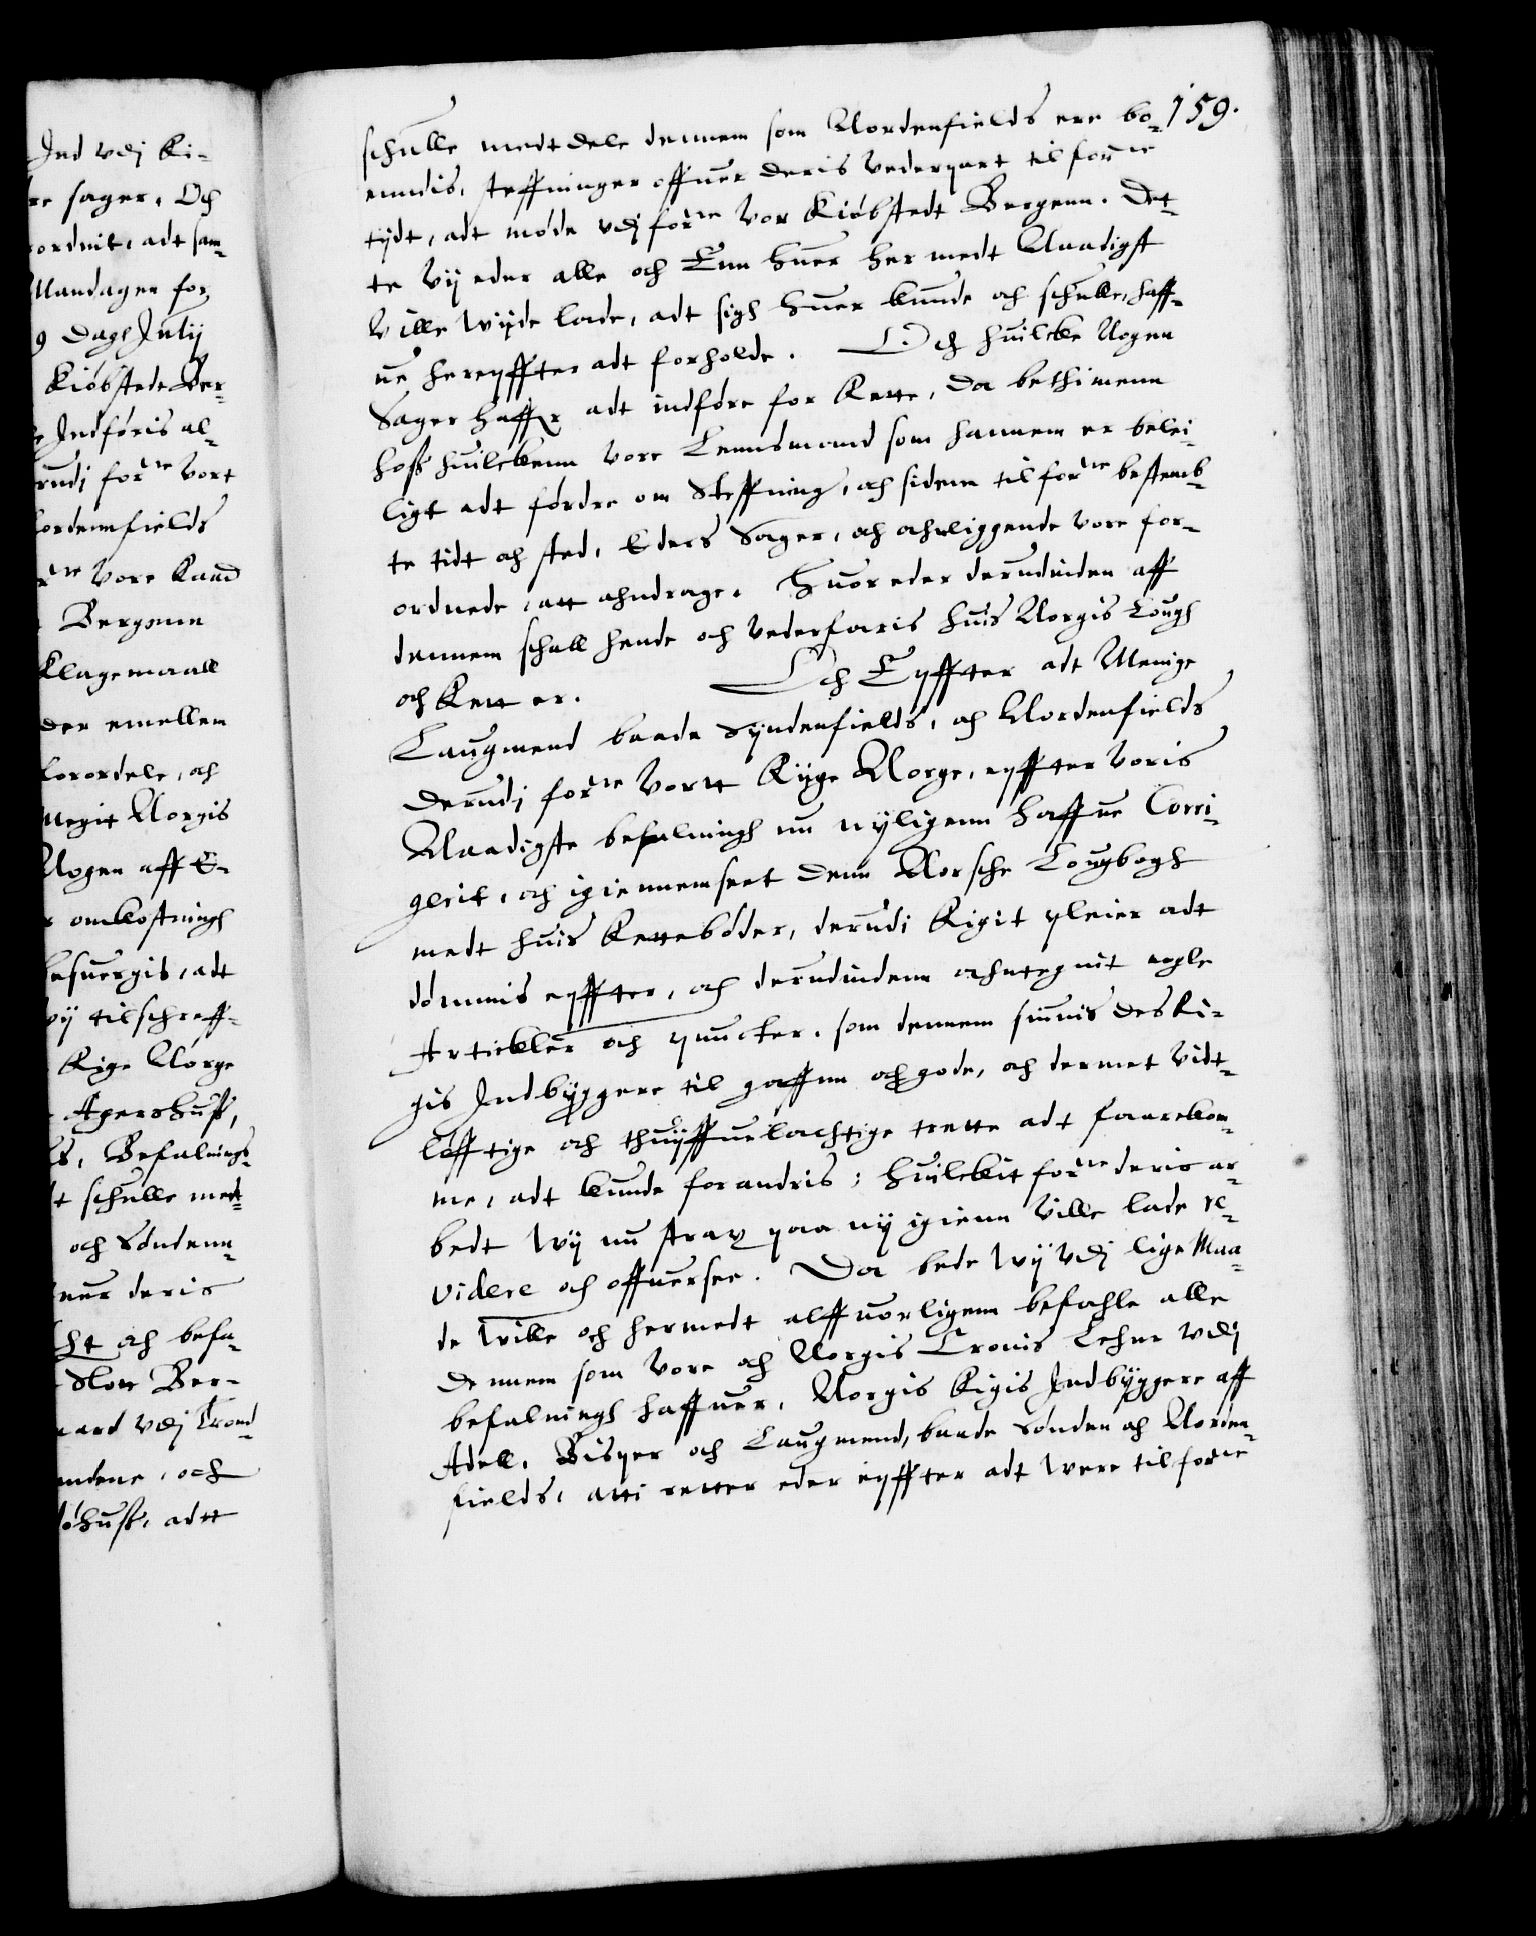 Ind vdj Ri-
re sager. Och
ordnit, adt sam-
Mandagen for
9 Dagh Julij
Kiøbstede Ber-
Indføris al-
rudj forne vort
ordennfields
rne Vore Raad
Bergenn
Klagemaall
der emellem
forordele, och
megit Norgis
Nogen aff E-
omkostningh
besuergis, adt
vij tilschreff-
Rige Norge
Agershuss,
Befalnings-
t schulle medt-
och Søndenn-
uer deris
cht och befa-
Slott Ber-
aard vdj Trond-
ndene, och
øhuss, adtt
159.
schulle medt dele dennem som Nordenfields ere bo-
enndis, steffninger offuer deris Vederpart til forne
tijdt, adt møde vdj forne Vor Kiøbstedt Bergenn. Det-
te Vij eder alle och Enn huer her medt Naadigst
Ville wijde lade, adt sigh huer kunde och schulle, haff-
ue hereyffter adt forholde. Och huilcke Nogen
Sager haffr adt indføre for Rette, da bethimenn
hoss huilckenn vore Lennsmand som hannem er belei-
ligt adt fordre om Steffning, och sidenn til forne bestemb-
te tidt och sted, Eders Sager, och ahnliggende vore for-
ordnede, att ahndrage. Huor eder derudinden aff
dennem schall hende och Vederfaris huis Norgis Lough
och Rett er. Och Eyffter adt Menige
Laugmend baade Syndenfields, och Nordenfields
derudj forne Vortt Rijge Norge, eyffter Voris
Naadigste befalningh nu nyligenn haffue Corri-
gerit, och igiennemseet denn Norsche Lougbogh
medt huis Rettebøder, derudi Rigit pleier adt
dømmis eyffter, och derudindenn ahntegnit nogle
Artickler och puncter, som dennem siunis des Ri-
gis Indbyggere til gaffnn och gode, och dermet Vidt-
løfftige och thuijffuelachtige trette adt faarekom-
me, adt kunde forandris; huilckit forne deris ar-
bedt wij nu strax paa ny igienn Ville lade re-
videre och offuersee. Da bede wij vdj lige Maa-
de wille och hermedt alffuorligenn befahle alle
dennem som Vore och Norgis Cronis Lehne vdj
befalningh haffuer, Norgis Rigis Indbyggere aff
Adell, Bisper och Laugmend, baade Sønden och Norden-
fields, atti retter eder eyffter adt were til forne